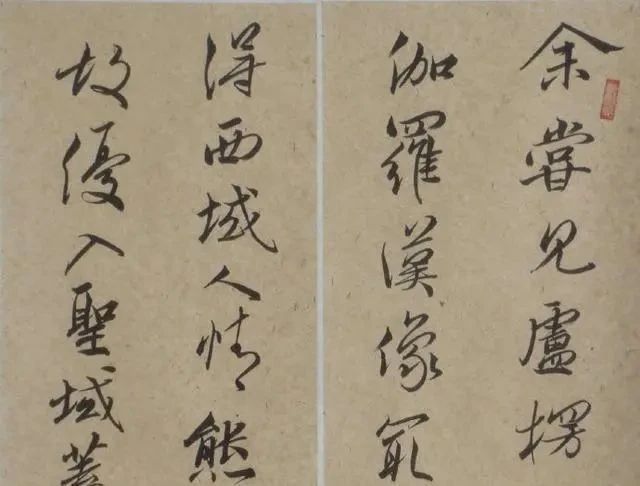 余嘗見盧楞
伽羅漢像冣
得西域人情態
故優入聖域蓋